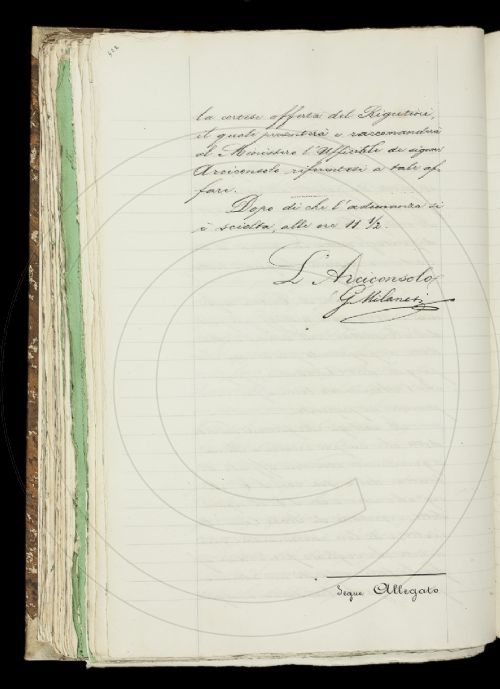 422
la cortese offerta del Rigutini,
il quale presenterà e raccomanderà
al Ministero l'Ufficiale di signor
Arciconsolo riferentesi a tale af-
fare.
Dopo di che l'adunanza si
è sciolta, alle ore 11 1/2.
L'Arciconsolo
G. Milanesi
Segue Allegato